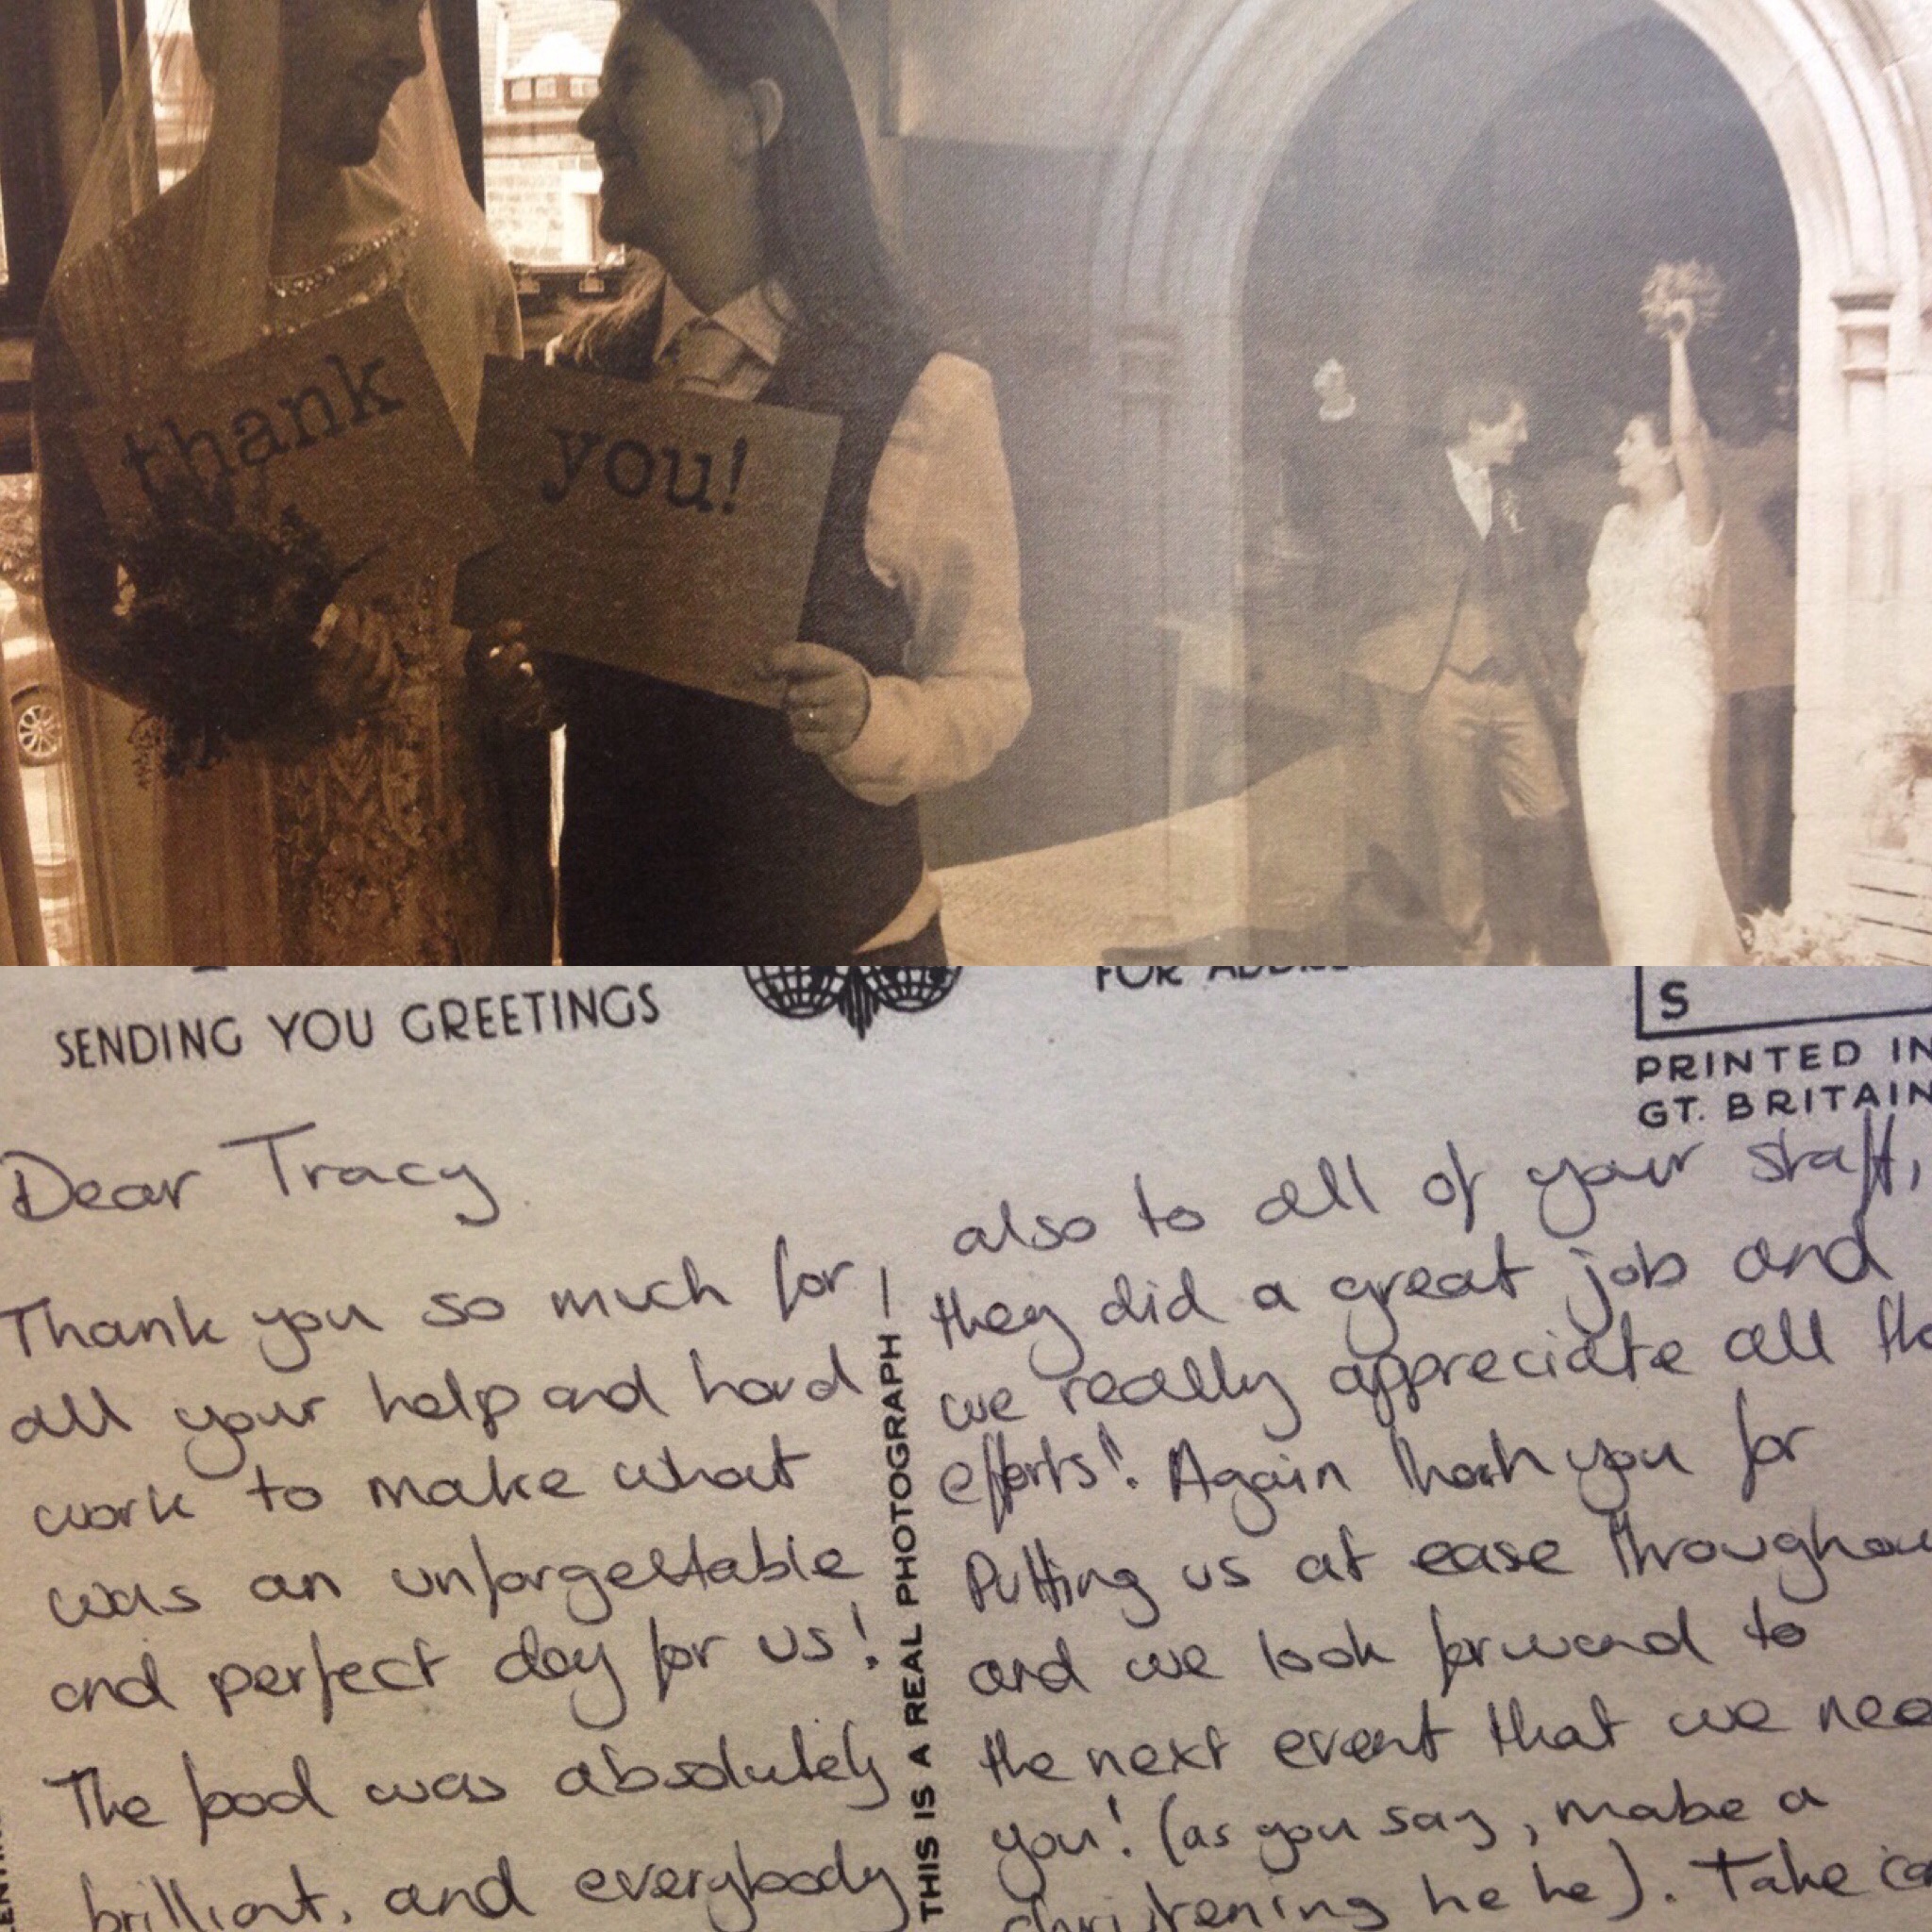 thank
you!
SENDING YOU GREETINGS
FOR
S
PRINTED IN
GT. BRITAIN
Dear Tracy
Thank you so much for
all your help and hard
work to make what
was an unforgettable
and perfect day for us!
The food was absolutely
brilliant, and everybody
THIS IS A REAL PHOTOGRAPH
also to all of your staff,
they did a great job and
we really appreciate all
efforts! Again thank you for
Putting us at ease
and we look forward to
the next event that we
you! (as you say, mabe a
christening he he). Take